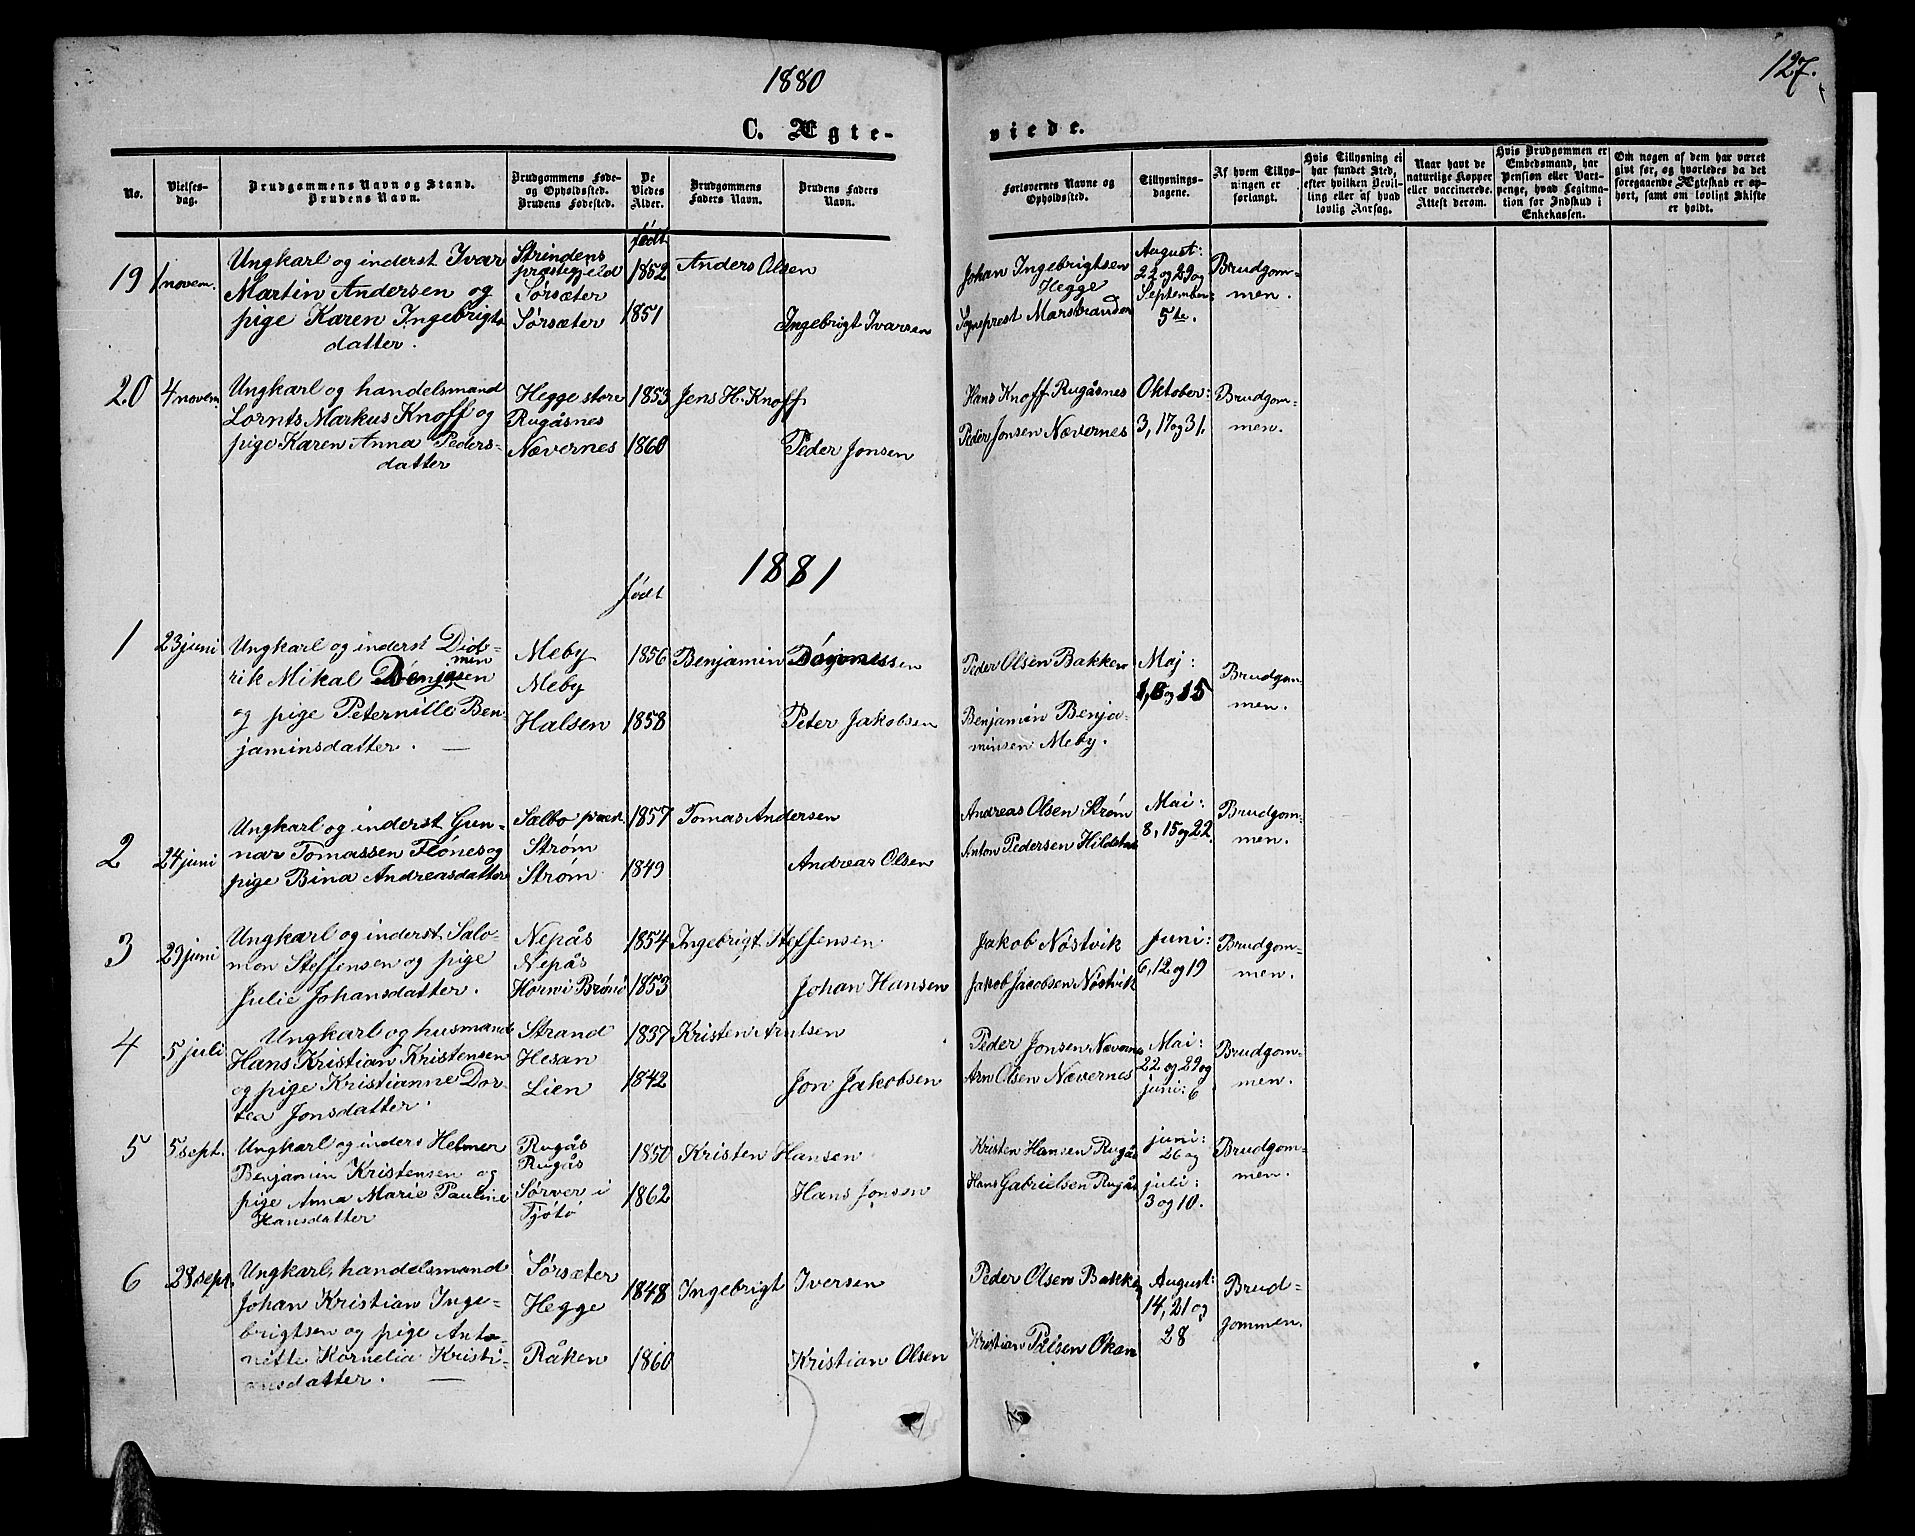 1880
127.
C. Ægte-
viede.
No.
Vielses-
dag.
Brudgommens Navn og Stand.
Brudens Navn.
Brudgommens Føde-
og Opholdssted.
Brudens Fødested.
De
Viedes
Alder.
Brudgommens
Faders Navn.
Brudens Faders
Navn.
Forlovernes Navne og
Opholdssted.
Tillysnings-
dagene.
Af hvem Tillys-
ningen er
forlangt.
Hvis Tillysning ei
har fundet Sted,
efter hvilken Bevil-
ling eller af hvad
lovlig Aarsag.
Naar havt de
naturlige Kopper
eller vaccinerede.
Attest derom.
Hvis Brudgommen er
Embedsmand, har
Pension eller Vart-
penge, hvad Legitima-
tion for Indskud i
Enkekassen.
Om nogen af dem har været
givt før, og hvorledes da det
foregaaende Ægteskab er op-
hørt, samt om lovligt Skifte
er holdt.
født
19
1 novem.
Ungkarl og inderst Ivar
Martin Andersen og
pige Karen Ingebrigts
datter.
Strindens
præstegjeld
Sørsæter
Sørsæter
1852
1851
Anders Olsen
Ingebrigt Ivarsen
Johan Ingebrigtsen
Hegge
Sogneprest Marstrander
August:
22 og 29 og
September:
5te.
Brudgom-
men.
20
4 novem.
Ungkarl og handelsmand
Lornts Markus Knoff og
pige Karen Anna Peders-
datter
Hegge store
Rugåsnes
Nævernes
1853
1860
Jens H. Knoff
Peder Jonsen
Hans Knoff Rugåsnes
Peder Jonsen Nævernes
Oktober:
3, 17 og 31.
Brudgom-
men.
1881
født
1
23 juni
Ungkarl og inderst Did-
rik Mikal Benjamin
sen
og pige Peternille Ben-
jaminsdatter.
Meby
Meby
Halsen
1856
1858
Benjamin
Peter Jakobsen
Peder Olsen Bakken
Benjamin Benja-
minsen Meby.
Maj:
1, 8 og 15
Brudgom-
men.
2
24 juni
Ungkarl og inderst Gun-
nar Tomassen Flönes og
pige Bina Andreasdatter
Sælbo præst.
Strøm
Strøm
1857
1849
Tomas Andersen
Andreas Olsen
Andreas Olsen Strøm
Anton Pedersen
Mai:
8, 15 og 22.
Brudgom-
men.
3
29 juni
Ungkarl og inderst Salo-
mon Steffensen og pige
Julie Johansdatter.
Nepås
Nepås
Horn i Brønö
1854
1853
Ingebrigt Steffensen
Johan Hansen
Jakob Nöstvik
Jakob Jacobsen Nöstvik
Juni:
6, 12 og 19
Brudgom-
men.
4
5 juli
Ungkarl og husmand
Hans Kristian Kristensen
og pige Kristianne Dor-
tea Jonsdatter.
Strand
Hesan
Lien
1837
1842
Kristen Arntsen
Jon Jakobsen
Peder Jonsen Nævernes
Arn Olsen Nævernes
Mai:
22 og 29 og
juni: 6
Brudgom-
men.
5
5 sept.
Ungkarl og inders Helmer
Benjamin Kristensen og
pige Anna Marie Pauline
Hansdatter
Rugås
Rugås
Sørver i
Tjötö
1850
1862
Kristen Hansen
Hans Jonsen
Kristen Hansen Rugås
Hans Gabrielsen Rugås
juni:
26 og
juli:
3 og 10.
Brudgom-
men.
6
28 sept.
Ungkarl, handelsmand
Johan Kristian Inge-
brigtsen og pige Anto-
nette Kornelia Kristi-
ansdatter.
Sørsæter
Hegge
Råken
1848
1860
Ingebrigt Iversen
Kristian Olsen
Peder Olsen Bakken
Kristian Pålsen Økan
August:
14, 21 og
28
Brud-
gommen.